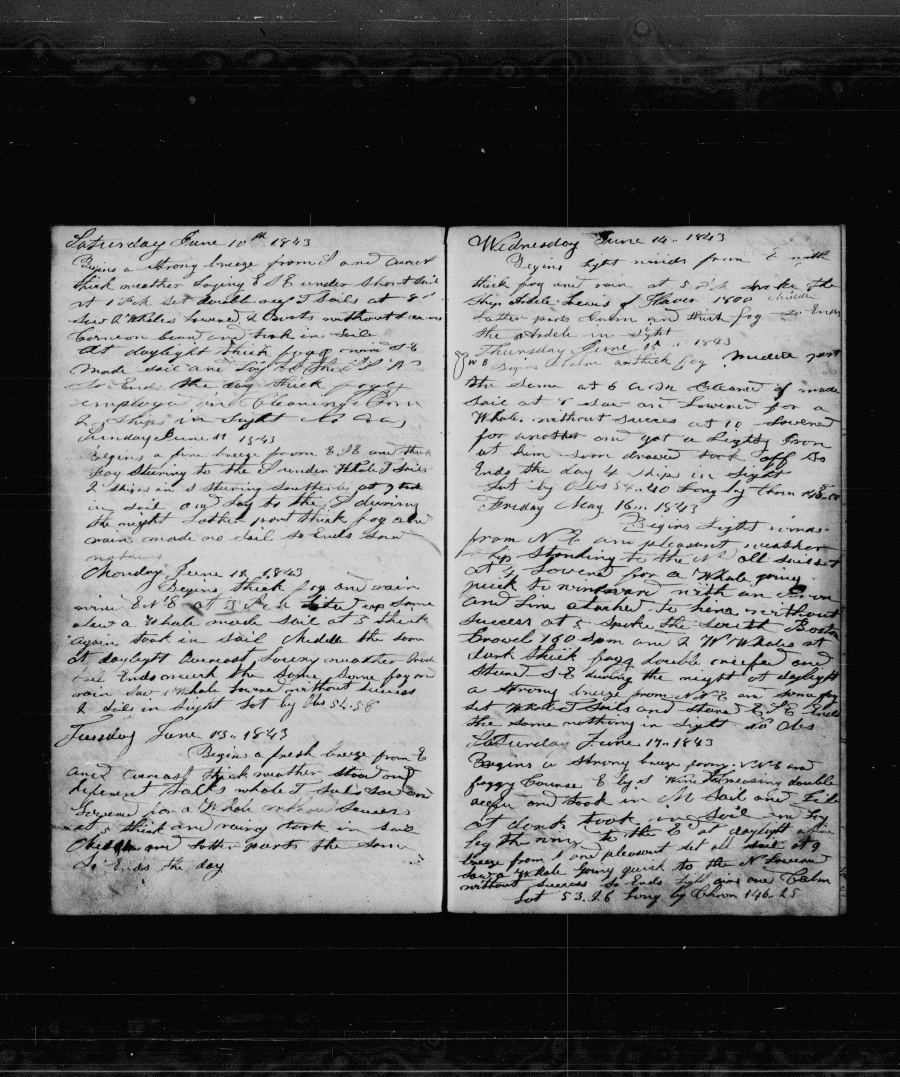 Saturday June 10th 1843
Begins a strong breeze from S and overcast
thick weather laying E S E under short sail
at 1 P.M set double reef T Sails at 8
saw 2 Whales lowered 2 Boats without success
took in Sail
At daylight thick fogg wind S E
made sail and
So Ends the day thick fogg
employed in Cleaning Bone
2 Ships in sight No Obs
Sunday June 11 1843
Begins a fine breeze from E S E and thick
Fog steering to the S under Whole T Sails
2 ships in s steering southerly at 7 took
in sail and lay to the S during
the night Latter part thick fog and
rain made no sail so Ends saw
nothing
Monday June 12 1843
Begins thick fog and rain
wind E N E at 3 P.M up some
saw a Whale made sail at 5 thick
again took in sail Middle the same
at daylight Overcast weather made
sail Ends much the same some fog and
rain saw 1 Whale lowered without success
2 Sails in sight Lat by Obs 54.58
Tuesday June 13.. 1843
Begins a fresh breeze from E
and overcast thick weather stood on
different Tacks whole T Sails saw and
lowered for a Whale without success
at thick and rainy took in sail
Middle and latter parts the same
So Ends the day
Wednesday June 14.. 1843
Begins light winds from E with
thick fog and rain at 5 P.M spoke the
Ship Adele Lewis of Havre 1800 Middle
Latter parts Calm and thick fog so Ends
the Adele in sight
Thursday June 15.. 1843
N B Begins Calm and thick fog Middle part
the same at 6 A.M Cleared of made
sail at 8 saw and Lowered for a
Whale without success at 10 Lowered
for another and got a Lightly Iron
in him soon drawed took off So
Ends the day 4 ships in sight
Lat by Obs 54..40 Long by Chron
Friday May 16.. 1843
Begins Light winds
from N E and pleasant weather
ship standing to the N all sail set
at 4 Lowered for a Whale going
quick to windward with an Iron
and Line attached to him without
success at 5 spoke the South Boston
160 Spm and 2 W Whales at
dark thick fogg double reefed and
steered S E during the night at daylight
a strong breeze from N N E and some fog
set Whole T Sails and steered E S E Ends
the same nothing in sight No Obs
Saturday June 17.. 1843
Begins a strong breeze from N N E and
foggy Course E by S Wind Increasing double
reefed and took in M Sail and Jib
at dark took in sail and lay
to the E at daylight a fine
breeze from S and pleasant set all sail at 9
saw a Whale going quick to the N Lowered
without success so Ends light airs and Calm
Lat 53.26 Long by Chron 146..25